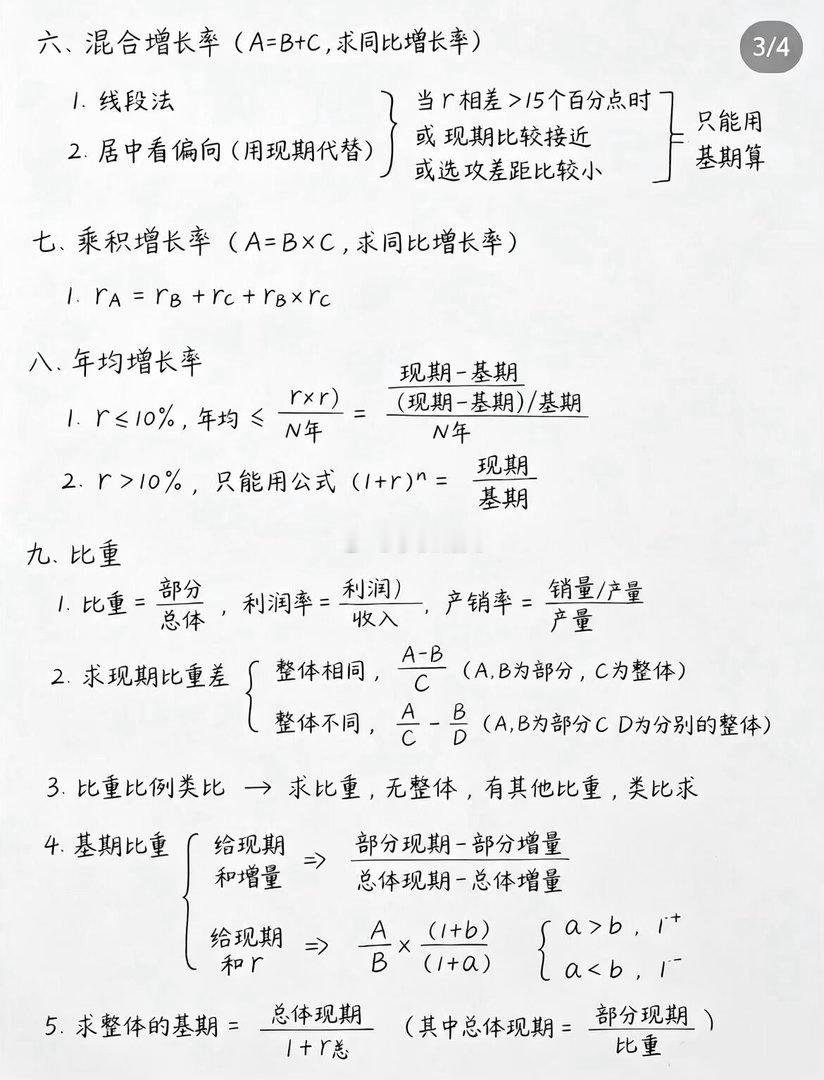 3/4
六、混合增长率（A=B+C,求同比增长率）
1. 线段法
2. 居中看偏向（用现期代替）
当r相差>15个百分点时
或现期比较接近
或选攻差距比较小
= 只能用
基期算
七、乘积增长率（A=B×C,求同比增长率）
1. rA = rB + rC + rB×rC
八、年均增长率
1. r≤10%，年均 ≤ r×r)/N年 = 现期-基期/(现期-基期)/基期/N年
2. r>10%，只能用公式 (1+r)ⁿ = 现期/基期
九、比重
1. 比重=部分/总体，利润率=利润)/收入，产销率=销量/产量/产量
2. 求现期比重差
整体相同，A-B/C（A,B为部分，C为整体）
整体不同，A/C - B/D（A,B为部分C D为分别的整体）
3. 比重比例类比 → 求比重，无整体，有其他比重，类比求
4. 基期比重
给现期
和增量 => 部分现期-部分增量/总体现期-总体增量
给现期
和r => A/B × (1+b)/(1+a)
a>b，1⁺
a<b，1⁻
5. 求整体的基期 = 总体现期/1+r总（其中总体现期=部分现期/比重）